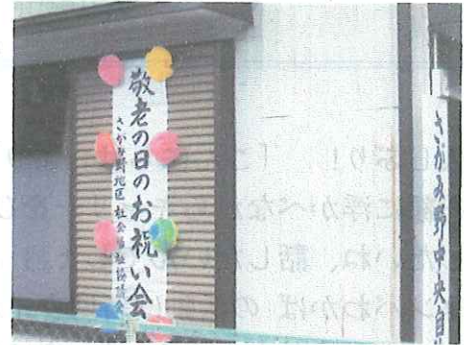 敬老の日のお祝い会
さがみ野地区 社会福祉協議会
さがみ野中央自